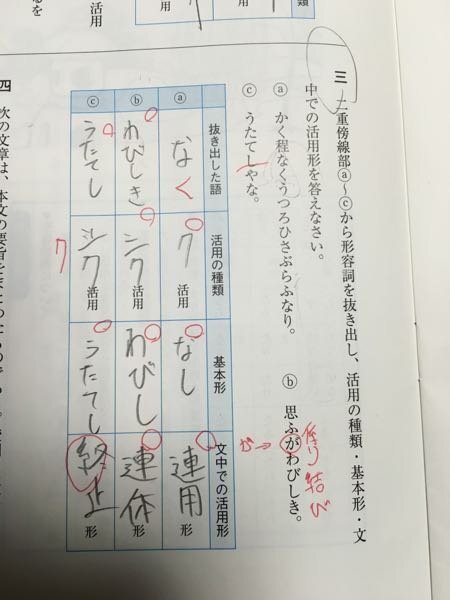 種類
活用
るを
三 二重傍線部ⓐ～ⓒから形容詞を抜き出し、活用の種類・基本形・文
中での活用形を答えなさい。
ⓐ かく程なくうつろひさぶらふなり。
ⓑ 思ふがわびしき。
係り結び
が→
ⓒ うたてしやな。
抜き出した語
活用の種類
基本形
文中での活用形
ⓐ
なく
ク活用
なし
連用形
ⓑ
わびしき
シク活用
わびし
連体形
ⓒ
うたてし
シク活用
ク
うたてし
終止形
四 次の文章は、本文の要旨をまとめたものである。